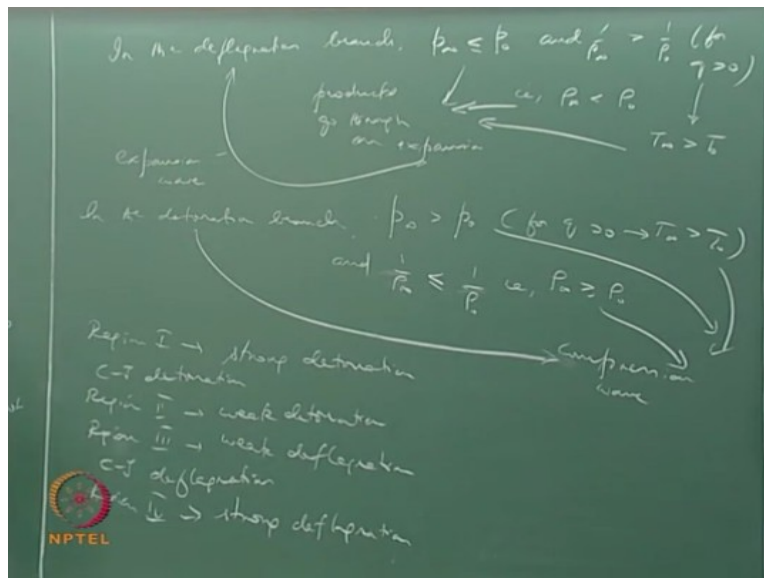 In the deflagration branch, p∞ ≤ p₀ and 1/ρ∞ > 1/ρ₀ (for q>0)
products ie, ρ∞ < ρ₀
go through
an expansion T∞ > T₀
expansion
wave
In the detonation branch, p∞ > p₀ (for q >0 → T∞ > T₀)
and 1/ρ∞ ≤ 1/ρ₀ ie, ρ∞ ≥ ρ₀
compression
wave
Region I → strong detonation
C-J detonation
Region II → weak detonation
Region III → weak deflagration
C-J deflagration
Region IV → strong deflagration
NPTEL